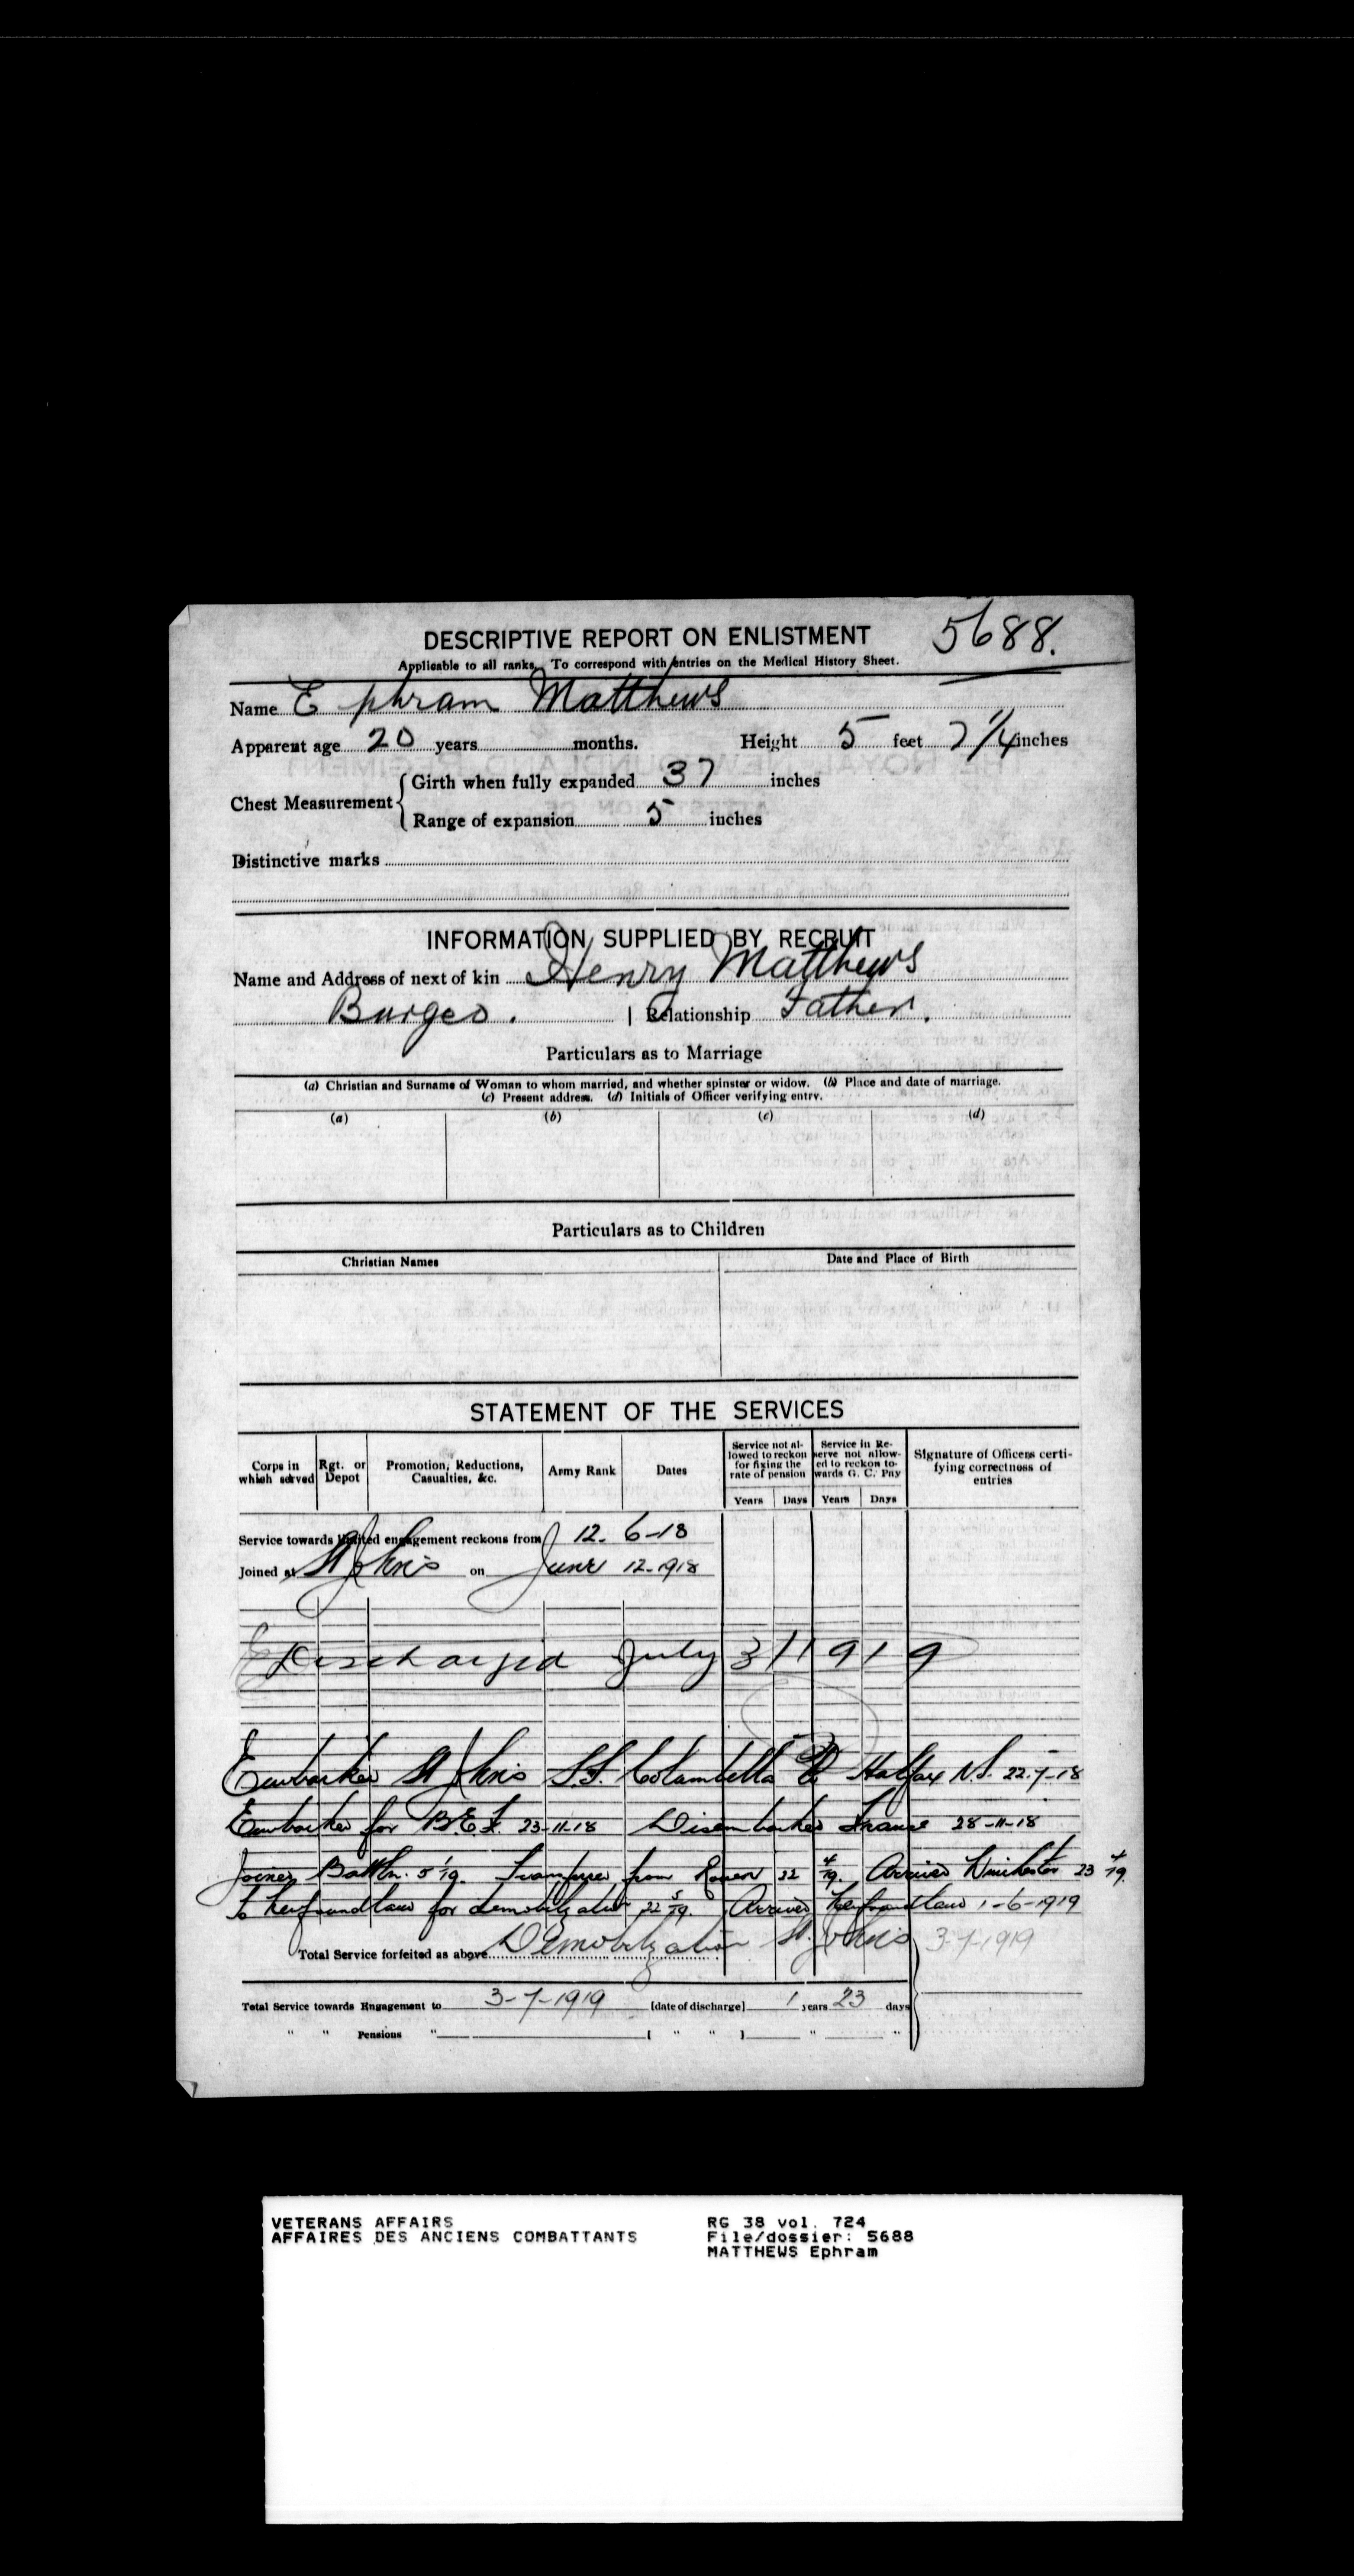 5688.
DESCRIPTIVE REPORT ON ENLISTMENT
Applicable to all ranks. To correspond with entries on the Medical History Sheet.
Name Ephram Matthews
Apparent age 20 years months. Height 5 feet 7 1/4 inches
Chest Measurement
Girth when fully expanded 37 inches
Range of expansion 5 inches
Distinctive marks
INFORMATION SUPPLIED BY RECRUIT
Name and Address of next of kin Henry Matthews
Burgeo. | Relationship Father.
Particulars as to Marriage
(a) Christian and Surname of Woman to whom married, and whether spinster or widow. (b) Place and date of marriage.
(c) Present address. (d) Initials of Officer verifying entry.
(a) (b) (c) (d)
Particulars as to Children
Christian Names Date and Place of Birth
STATEMENT OF THE SERVICES
Corps in which served Rgt. or Depot Promotion, Reductions, Casualties, &c. Army Rank Dates Service not allowed to reckon for fixing the rate of pension Service in Reserve not allowed to reckon towards G. C. Pay Signature of Officers certifying correctness of entries
Years Days Years Days
Service towards limited engagement reckons from 12. 6-18
Joined at St Johns on June 12-1918
Discharged July 3/1919
Embarked St Johns S.S. Columbella to Halifax N.S. 22-7-18
Embarked for B.E.F. 23-11-18 Disembarked France 28-11-18
Joined Battln. 5 1/19. Transferred from Rouen 22 4/19. Arrived Winchester 23 4/19.
To Newfoundland for demobilization 22 5/19. Arrived Newfoundland 1-6-1919
Total Service forfeited as above Demobilization St. Johns 3-7-1919
Total Service towards Engagement to 3-7-1919 [date of discharge] 1 years 23 days
" " Pensions " [ " " ] " "
VETERANS AFFAIRS RG 38 vol. 724
AFFAIRES DES ANCIENS COMBATTANTS File/dossier: 5688
MATTHEWS Ephram